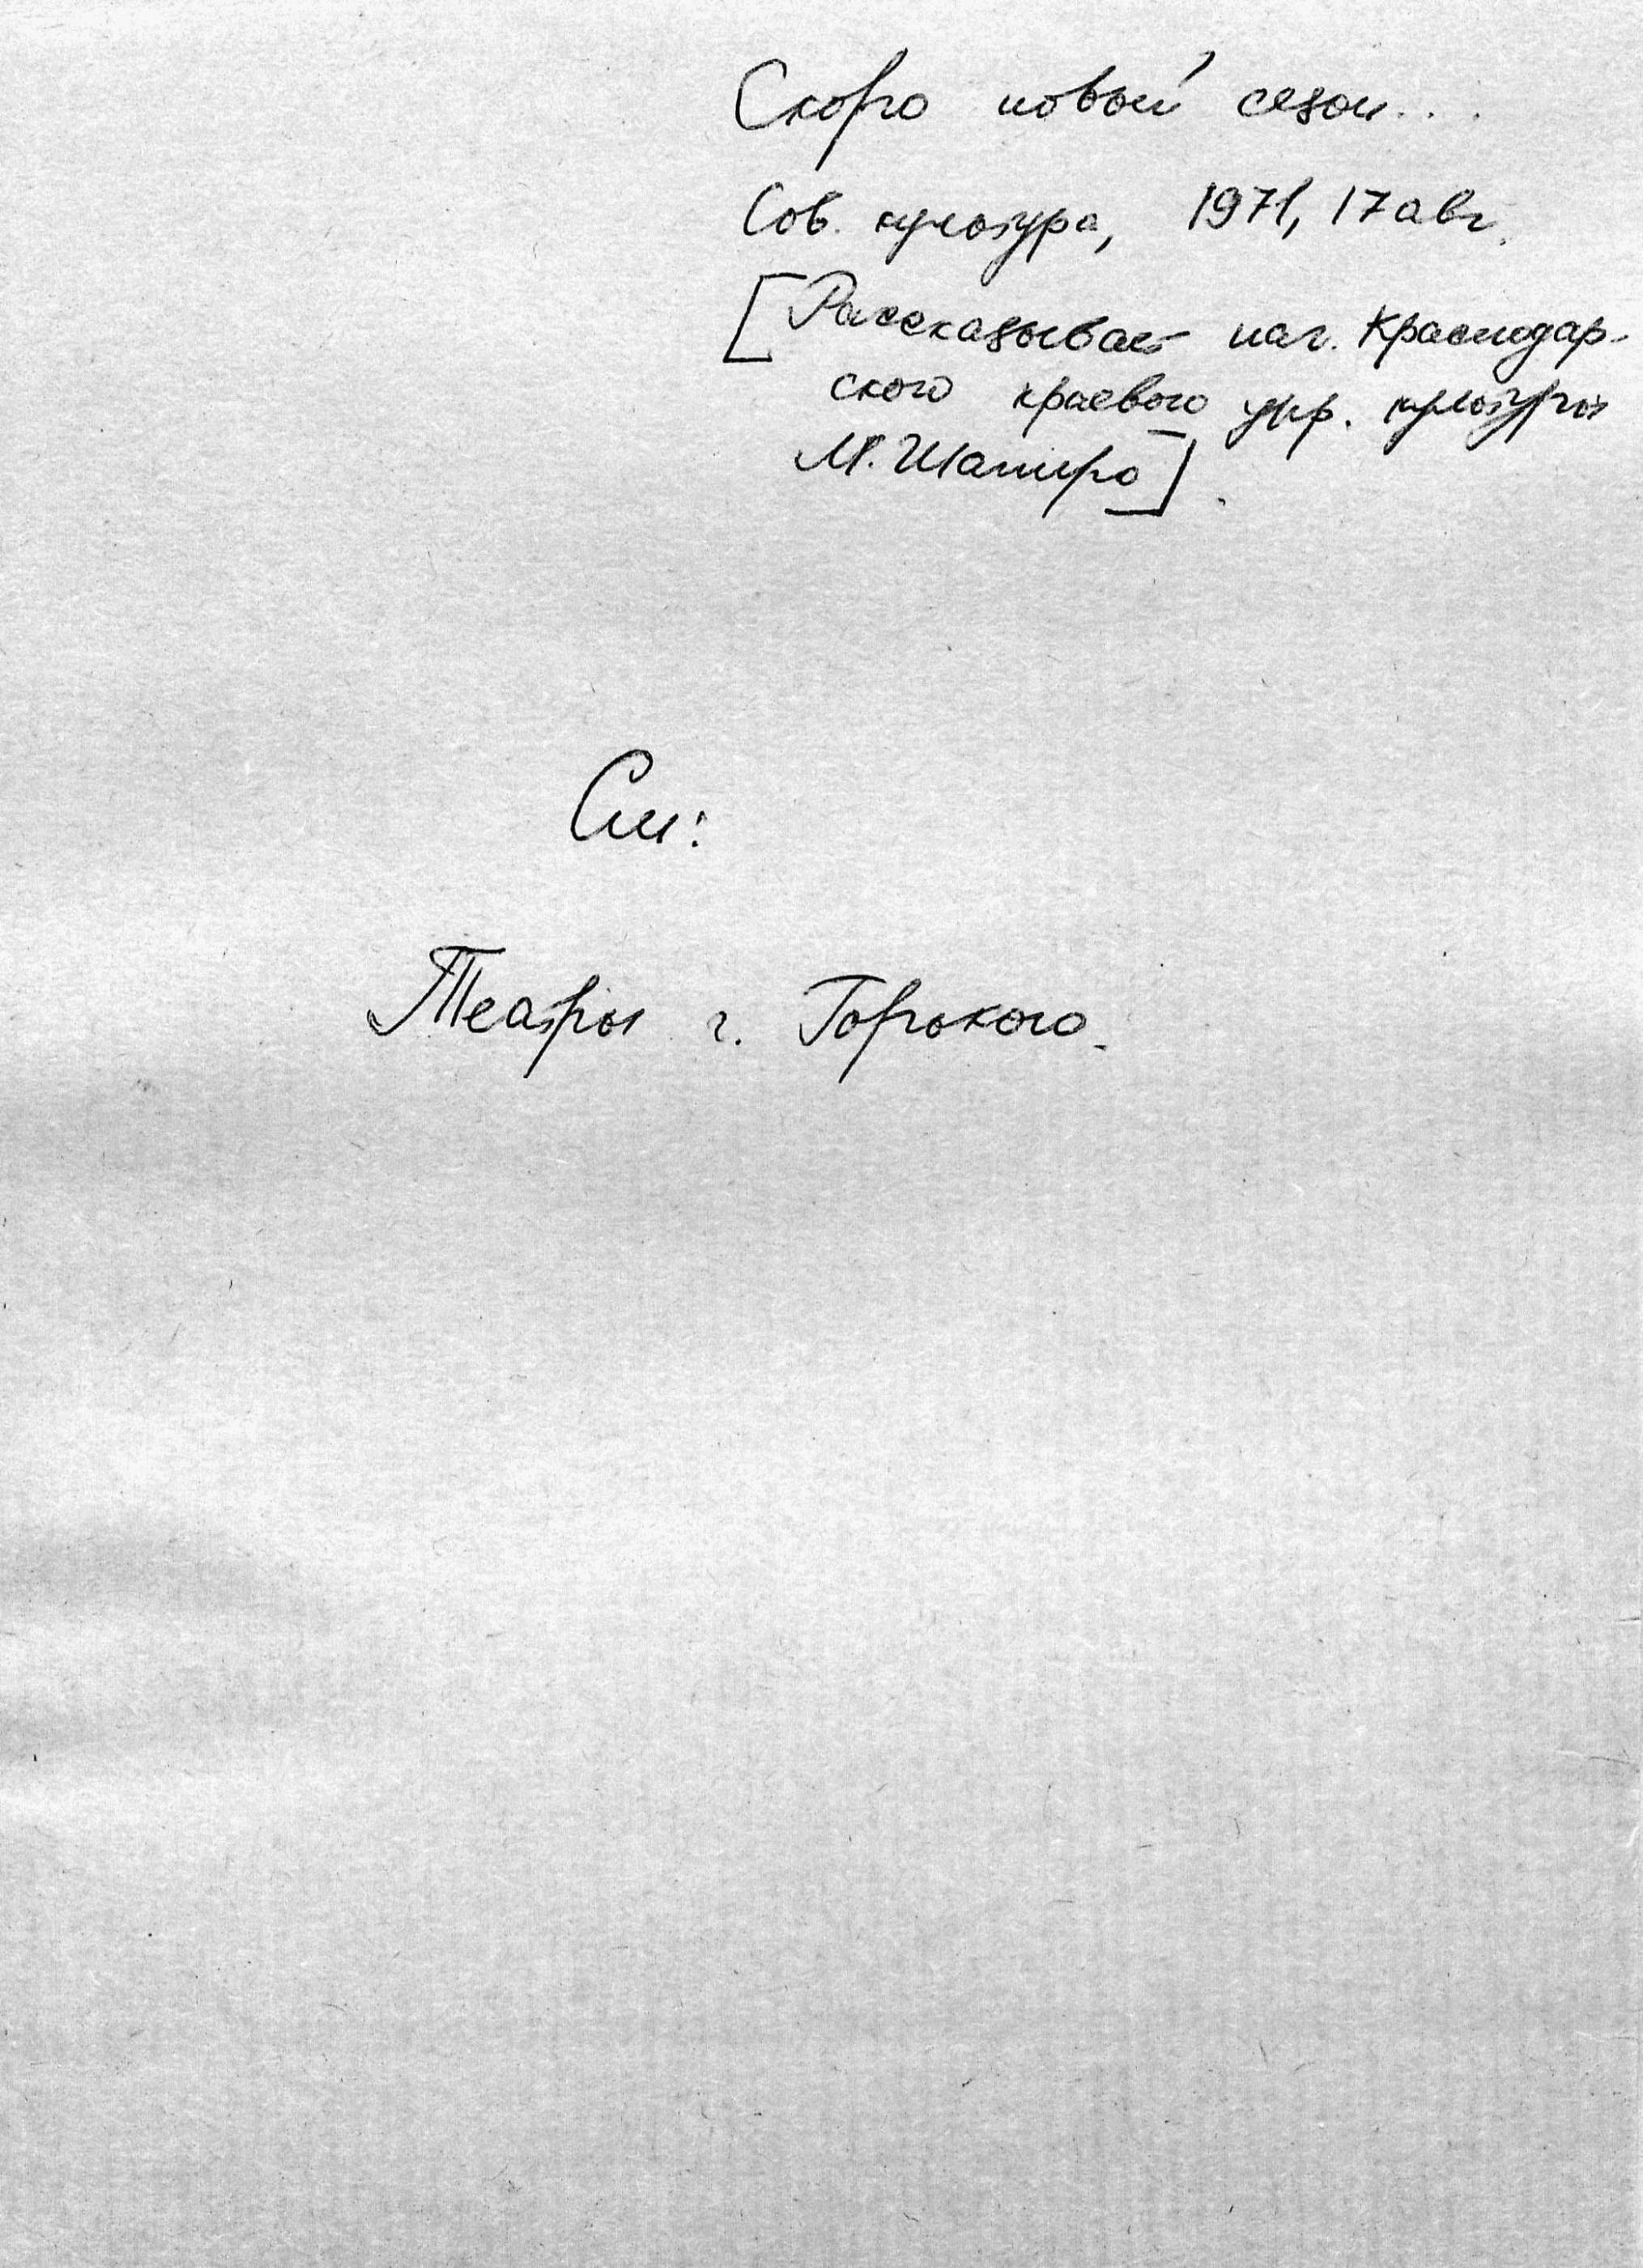 Скоро новый сезон...
Сов. культура, 1971, 17 авг.
[Рассказывает нач. Краснодар-
ского краевого упр. культуры
М. Шапиро].
См:
Театры г. Горького.